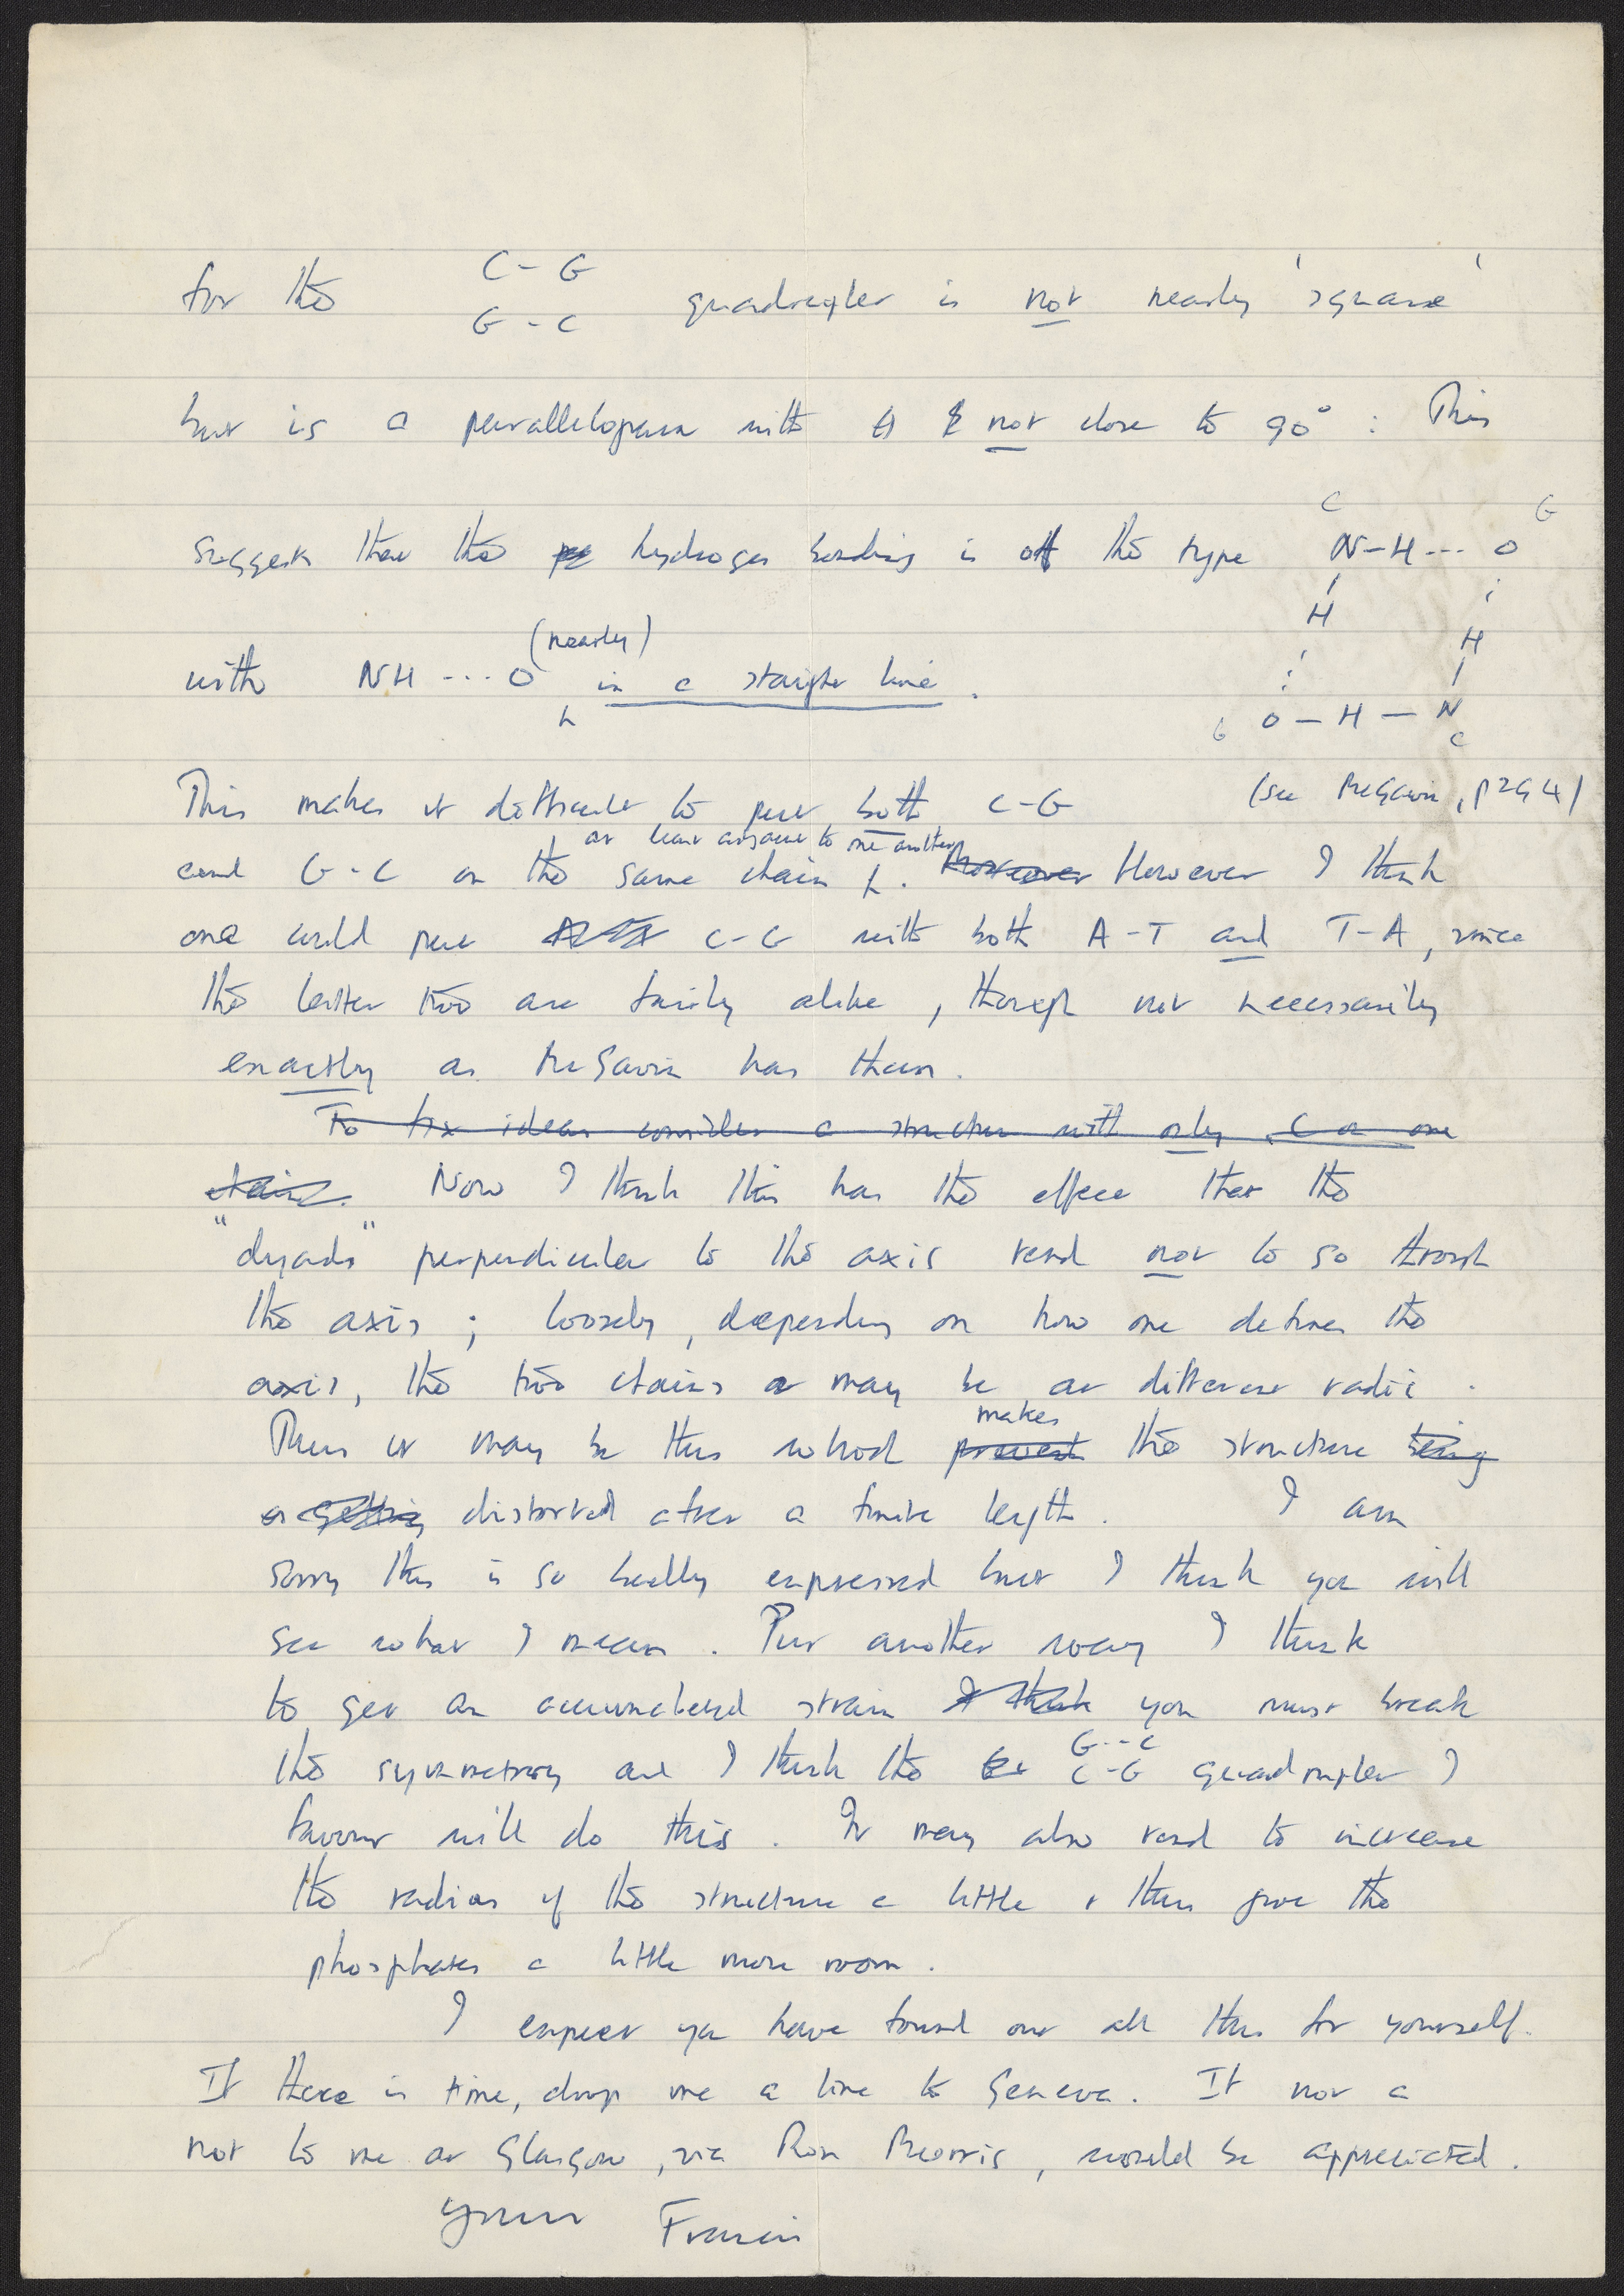 C - G
for the quadruplex is not nearly 'square'
G - C
but is a parallelogram with θ not close to 90° : This
C G
suggests that the hydrogen bonding is of the type N-H--- O
H H
(nearly)
with NH ---O in a straight line .
G O - H - N C
This makes it difficult to put both C-G (see McGavin, p294)
at least adjacent to one another
and G-C on the same chain . Moreover However I think
one could put C-G with both A-T and T-A, since
the latter two are fairly alike, though not necessarily
exactly as McGavin has them.
To fix ideas consider a structure with only C on one
chain. Now I think this has the effect that the
"dyads" perpendicular to the axis tend not to go through
the axis ; loosely, depending on how one defines the
axis, the two chains may be at different radii .
makes
Thus it may be this which prevents the structure being
or getting distorted after a finite length . I am
sorry this is so badly expressed but I think you will
see what I mean . Put another way I think
to get an accumulated strain I think you must break
G--C
the symmetry and I think the C-G quadruplex I
favour will do this . It may also tend to increase
the radius of the structure a little & thus give the
phosphates a little more room .
I expect you have found out all this for yourself.
If there is time, drop me a line to Geneva. If not a
not to me at Glasgow, via Ron Morris, would be appreciated .
Yours Francis